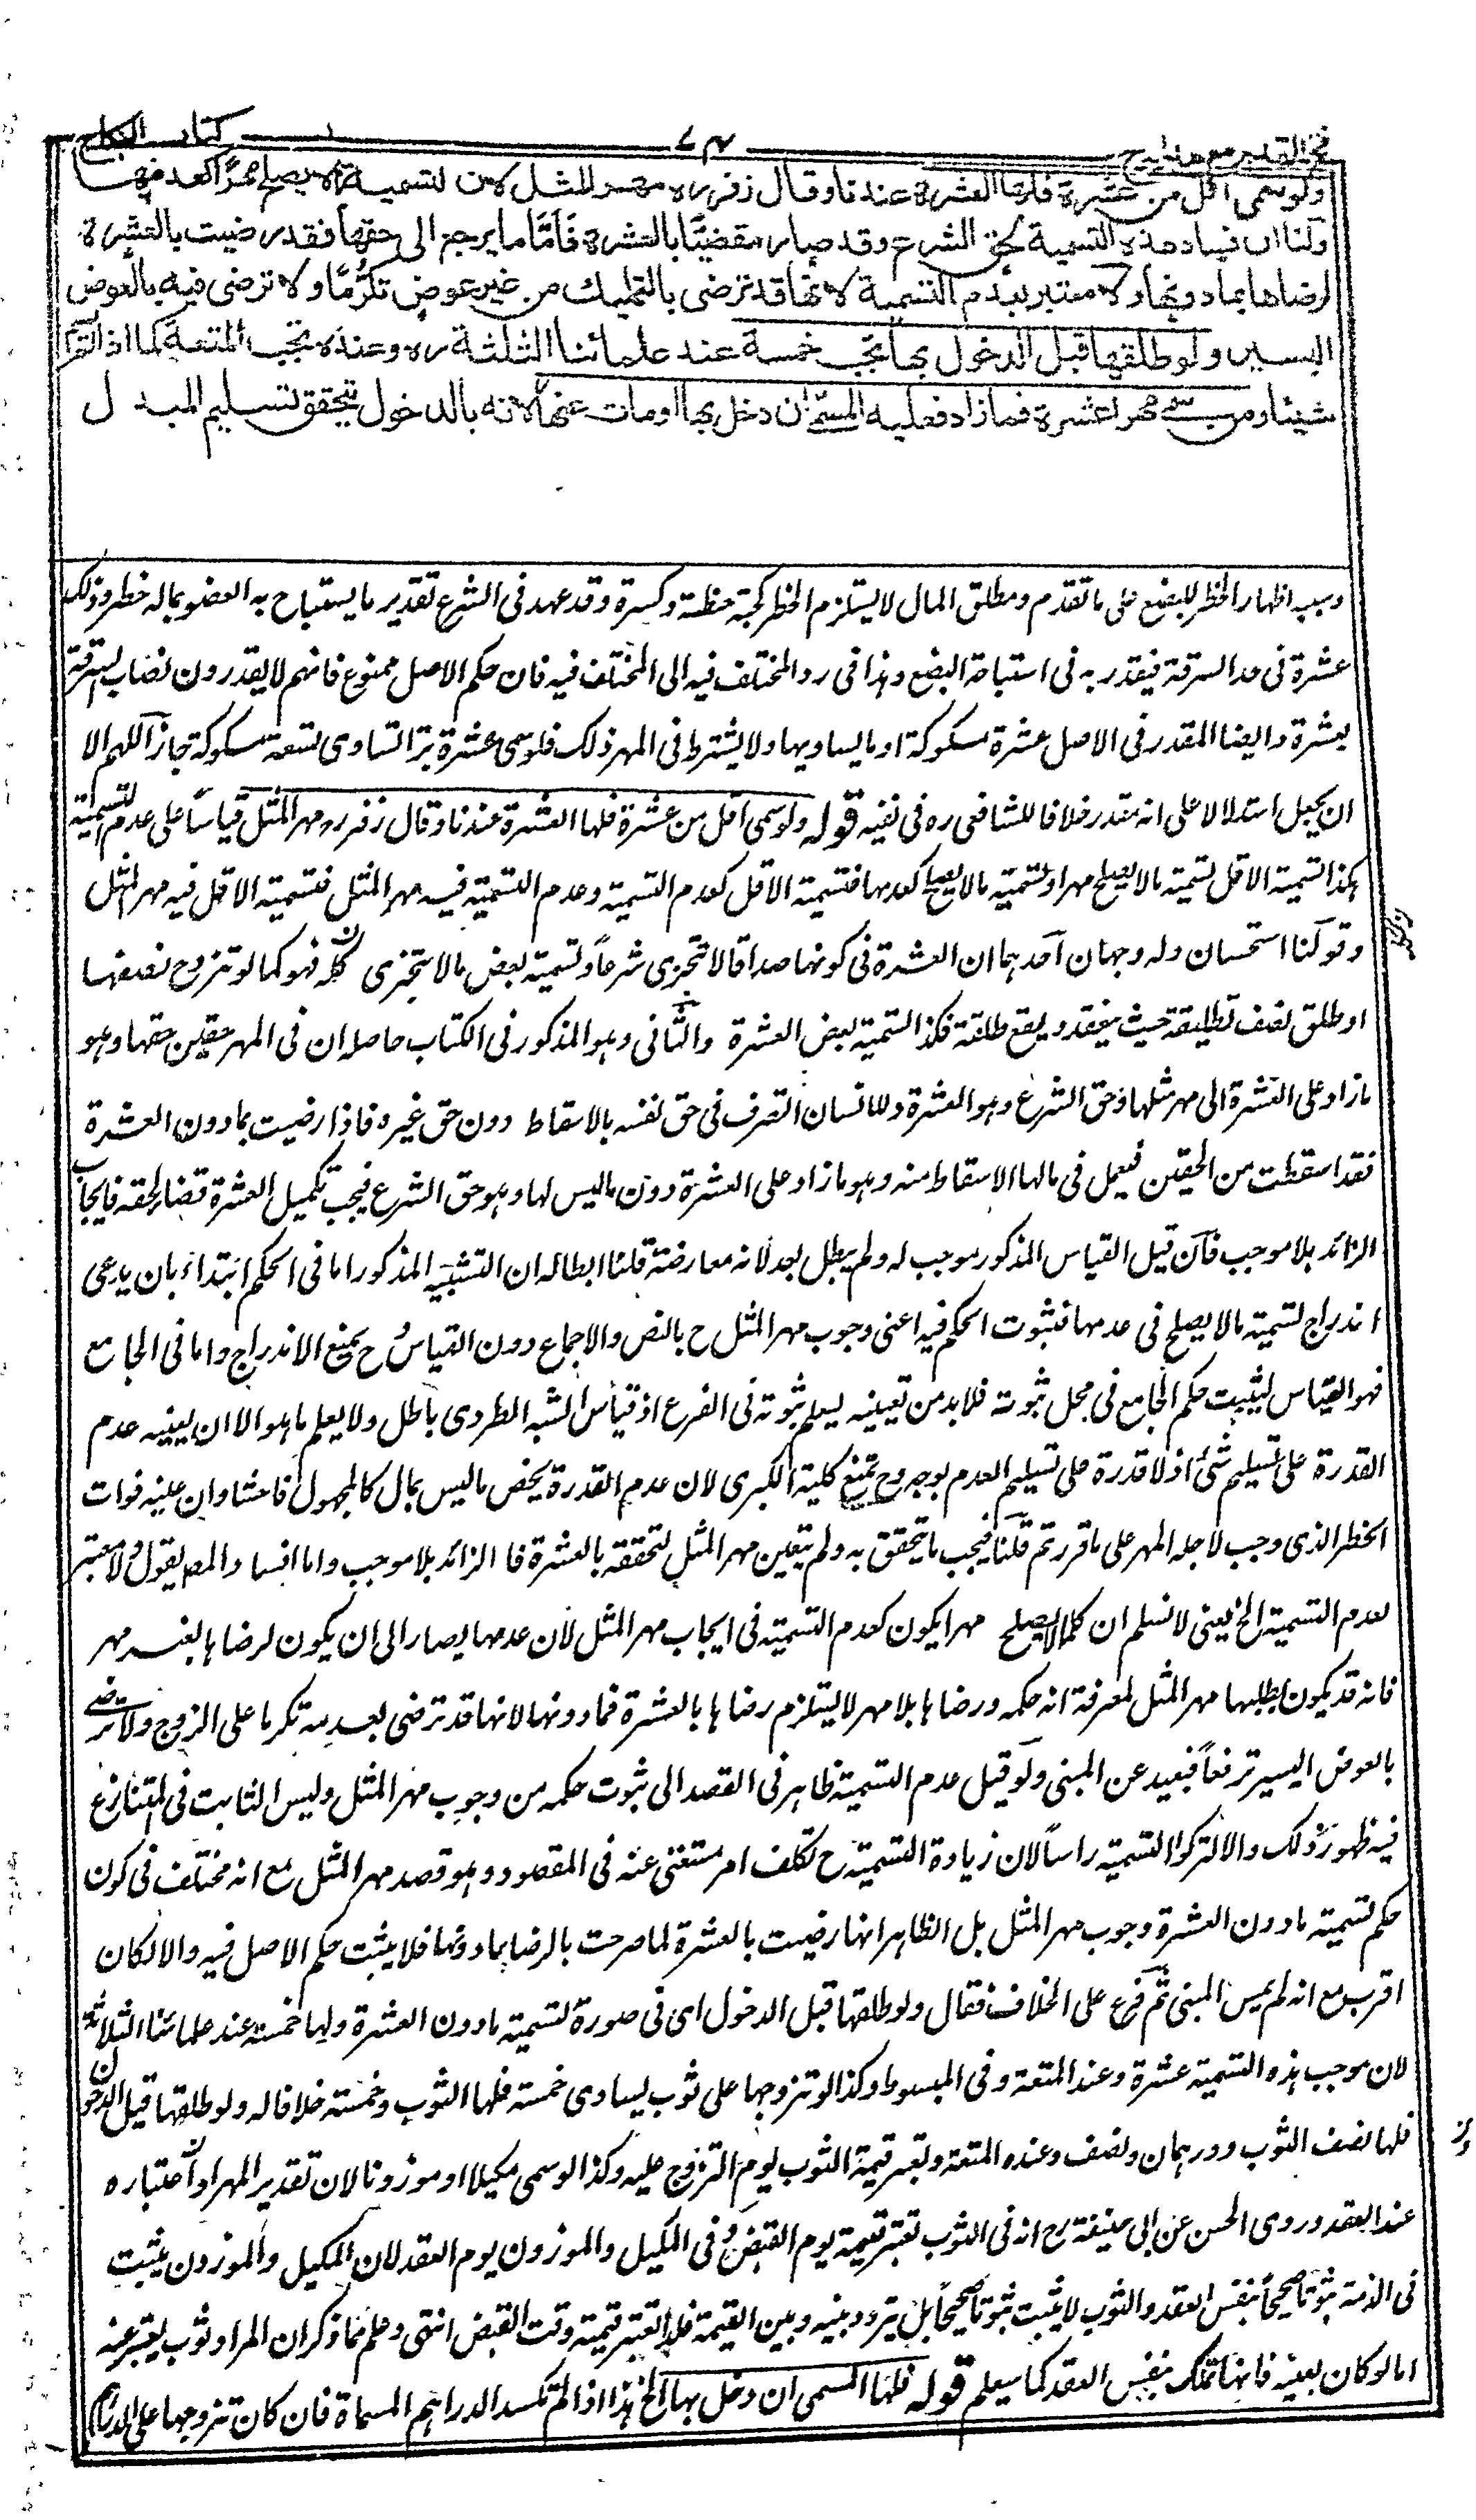 فتح القدير مع هداية ج
٧٤
كتاب النكاح
ولو سمى اقل من عشرة فلها العشرة عندنا وقال زفر ره مهر المثل لان تسمية ما لا يصلح مهرًا كعدمها
ولنا ان فساد هذه التسمية لحق الشرع وقد صار مقضيًّا بالعشرة فأمّا ما يرجع الى حقها فقد رضيت بالعشرة
لرضاها بما دونها ولا معتبر بعدم التسمية لانها قد ترضى بالتمليك من غير عوض تكرُّمًا ولا ترضى فيه بالعوض
اليسير ولو طلقها قبل الدخول بها تجب خمسة عند علمائنا الثلثة ره وعنده تجب المتعة كما اذا لم يسم
شيئا ومن سمى مهرا عشرة فما زاد فعليه المسمّى ان دخل بها او مات عنها لانه بالدخول يتحقق تسليم المبدل
وسببه اظهار الخطر للبضع على ما تقدم ومطلق المال لا يستلزم الخطر كحبة حنطة وكسرة وقد عهد فى الشرع تقدير ما يستباح به العضو بما له خطر وذلك
عشرة فى حد السرقة فيقدر به فى استباحة البضع وهذا فى رد المختلف فيه الى المختلف فيه فان حكم الاصل ممنوع فانهم لا يقدرون نصاب السرقة
بعشرة وايضا المقدر فى الاصل عشرة مسكوكة او ما يساويها ولا يشترط فى المهر ذلك فلو سمى عشرة تبرا تساوى تسعة مسكوكة جاز اللهم الا
ان يجعل استدلالا على انه مقدر خلافا للشافعى ره فى نفيه قوله ولو سمى اقل من عشرة فلها العشرة عندنا وقال زفر ره مهر المثل قياسًا على عدم التسمية
هكذا تسمية الاقل تسمية ما لا يصلح مهرا وتسمية ما لا يصلح كعدمها فتسمية الاقل كعدم التسمية وعدم التسمية فيه مهر المثل فتسمية الاقل فيه مهر المثل
وقولنا استحسان وله وجهان احدهما ان العشرة فى كونها صداقا لا تتجزى شرعًا وتسمية بعض ما لا يتجزى كله فهو كما لو تزوج نصفها
او طلق نصف تطليقة حيث ينعقد ويقع طلقة فكذا تسمية بعض العشرة والثانى وهو المذكور فى الكتاب حاصله ان فى المهر حقين حقها وهو
ما زاد على العشرة الى مهر مثلها وحق الشرع وهو العشرة وللانسان التصرف فى حق نفسه بالاسقاط دون حق غيره فاذا رضيت بما دون العشرة
فقد اسقطت من الحقين فيعمل فى ما لها الاسقاط منه وهو ما زاد على العشرة دون ما ليس لها وهو حق الشرع فيجب تكميل العشرة قضاء لحقه فايجاب
الزائد بلا موجب فان قيل القياس المذكور موجب له ولم يبطل بعد لانه معارضة قلنا ابطاله ان التشبيه المذكور اما فى الحكم ابتداء بان يدعى
اندراج تسمية ما لا يصلح فى عدمها فثبوت الحكم فيه اعنى وجوب مهر المثل ح بالنص والاجماع دون القياس وح يمنع الاندراج واما فى الجامع
فهو القياس ليثبت حكم الجامع فى محل ثبوته فلا بد من تعيينه ليعلم ثبوته فى الفرع اذ قياس الشبه الطردى باطل ولا يعلم ما هو الا ان يعينه عدم
القدرة على تسليم شئ اذ لا قدرة على تسليم العدم بوجه وح تمنع كلية الكبرى لان عدم القدرة يخص ما ليس بمال كالمجهول فاحشا وان عينه فوات
الخطر الذى وجب لاجله المهر على ما قررتم قلنا فيجب ما يتحقق به ولم يتعين مهر المثل لتحققه بالعشرة فالزائد بلا موجب واما افساد المص بقوله ولا معتبر
بعدم التسمية الخ يعنى لا نسلم ان كلما لا يصلح مهرا يكون كعدم التسمية فى ايجاب مهر المثل لان عدمها يصار الى ان يكون لرضاها بغير مهر
فانه قد يكون لطلبها مهر المثل لمعرفة انه حكمه ورضاها بلا مهر لا يستلزم رضاها بالعشرة فما دونها لانها قد ترضى بعدمه تكرما على الزوج ولا ترضى
بالعوض اليسير ترفعًا فبعيد عن المبنى ولو قيل عدم التسمية ظاهر فى القصد الى ثبوت حكمه من وجوب مهر المثل وليس الثابت فى المتنازع
فيه ظهور ذلك والا لتركوا التسمية راسًا لان زيادة التسمية ح تكلف امر مستغنى عنه فى المقصود وهو قصد مهر المثل مع انه مختلف فى كون
حكم تسمية ما دون العشرة وجوب مهر المثل بل الظاهر انها رضيت بالعشرة لما صرحت بالرضا بما دونها فلا يثبت حكم الاصل فيه والا لكان
اقرب مع انه لم يمس المبنى ثم فرع على الخلاف فقال ولو طلقها قبل الدخول اى فى صورة تسمية ما دون العشرة ولها خمسة عند علمائنا الثلاثة
لان موجب هذه التسمية عشرة وعنده المتعة وفى المبسوط وكذا لو تزوجها على ثوب يساوى خمسة فلها الثوب وخمسة خلافا له ولو طلقها قبل الدخول
فلها نصف الثوب ودرهمان ونصف وعنده المتعة وتعتبر قيمة الثوب يوم التزوج عليه وكذا لو سمى مكيلا او موزونا لان تقدير المهر واعتباره
عند العقد وروى الحسن عن ابى حنيفة رح انه فى الثوب تعتبر قيمته يوم القبض وفى المكيل والموزون يوم العقد لان المكيل والموزون يثبت
فى الذمة ثبوتا صحيحًا بنفس العقد والثوب لا يثبت ثبوتا صحيحًا بل يتردد بينه وبين القيمة فلذا تعتبر قيمته وقت القبض انتهى وعلم مما ذكر ان المراد ثوب بغير عينه
اما لو كان بعينه فانها تملكه بنفس العقد كما سيعلم قوله فلها المسمى ان دخل بها الخ هذا اذا لم تكسد الدراهم المسماة فان كان تزوجها على الدراهم